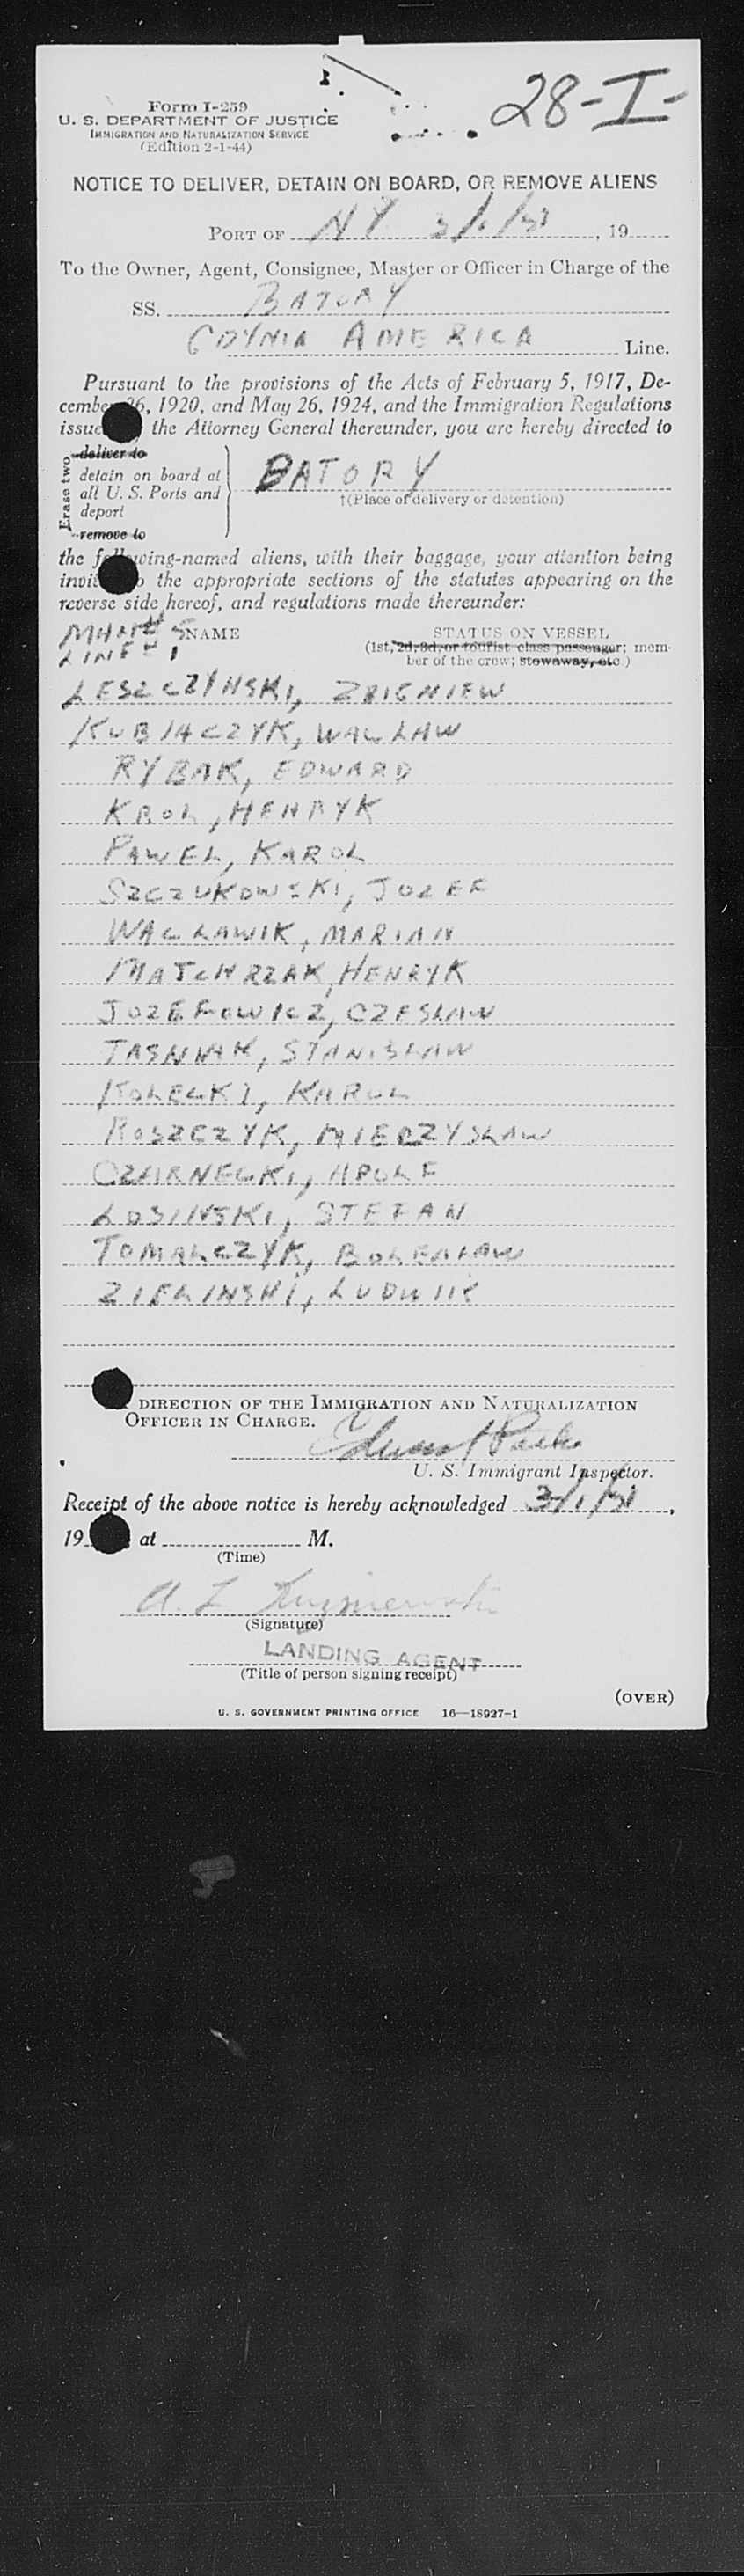 28-I-
Form I-259
U. S. DEPARTMENT OF JUSTICE
IMMIGRATION AND NATURALIZATION SERVICE
(Edition 2-1-44)
NOTICE TO DELIVER, DETAIN ON BOARD, OR REMOVE ALIENS
PORT OF NY 3/1/51, 19
To the Owner, Agent, Consignee, Master or Officer in Charge of the
SS. BATORY
GDYNIA AMERICA Line.
Pursuant to the provisions of the Acts of February 5, 1917, De-
cember 26, 1920, and May 26, 1924, and the Immigration Regulations
issued the Attorney General thereunder, you are hereby directed to
Erase two
deliver to
detain on board at
all U. S. Ports and
deport
remove to
BATORY
†(Place of delivery or detention)
the following-named aliens, with their baggage, your attention being
invited to the appropriate sections of the statutes appearing on the
reverse side hereof, and regulations made thereunder:
MANF# 5 NAME
LINE# 1
STATUS ON VESSEL
(1st, 2d, 3d, or tourist class passenger; mem-
ber of the crew; stowaway, etc.)
LESZCZYNSKI, ZBIGNIEW
KUBIACZYK, WACLAW
RYBAK, EDWARD
KROL, HENRYK
PAWEL, KAROL
SZCZUKOWSKI, JOZEF
WACLAWIK, MARIAN
MATCHRZAK, HENRYK
JOZEFOWICZ, CZESLAW
JASNIAK, STANISLAW
KOLECKI, KAROL
ROSZCZYK, MIECZYSLAW
CZARNECKI, ADOLF
LOSINSKI, STEFAN
TOMALCZYK, BOLESLAW
ZIELINSKI, LUDWIK
DIRECTION OF THE IMMIGRATION AND NATURALIZATION
OFFICER IN CHARGE.
U. S. Immigrant Inspector.
Receipt of the above notice is hereby acknowledged 3/1/51,
19 at M.
(Time)
A. L.
(Signature)
LANDING AGENT
(Title of person signing receipt)
(OVER)
U. S. GOVERNMENT PRINTING OFFICE 16—18927-1